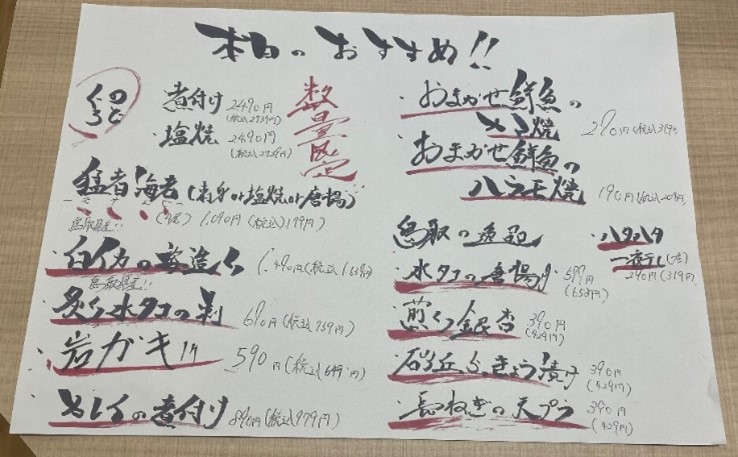 本日のおすすめ!!
のど
くろ
煮付け 2490円
(税込2739円)
塩焼 2490円
(税込2739円)
数量限定
猛者海老(刺身or塩焼or唐揚)
鳥取県産!! 1,090円(税込1,199円)
白イカの姿造り 1,490円(税込1,639円)
鳥取県産!!
炙り水タコの刺 690円(税込759円)
岩ガキ1ケ 590円(税込649円)
カレイの煮付け 890円(税込979円)
・おまかせ鮮魚の
カマ焼 290円(税込319円)
・おまかせ鮮魚の
ハラモ焼 190円(税込209円)
鳥取の逸品
・水タコの唐揚げ 599円
・煎り銀杏 390円
(429円)
・砂丘らっきょう漬け 390円
(429円)
・長ねぎの天プラ 390円
(429円)
・ハタハタ
一夜干し
290円(319円)